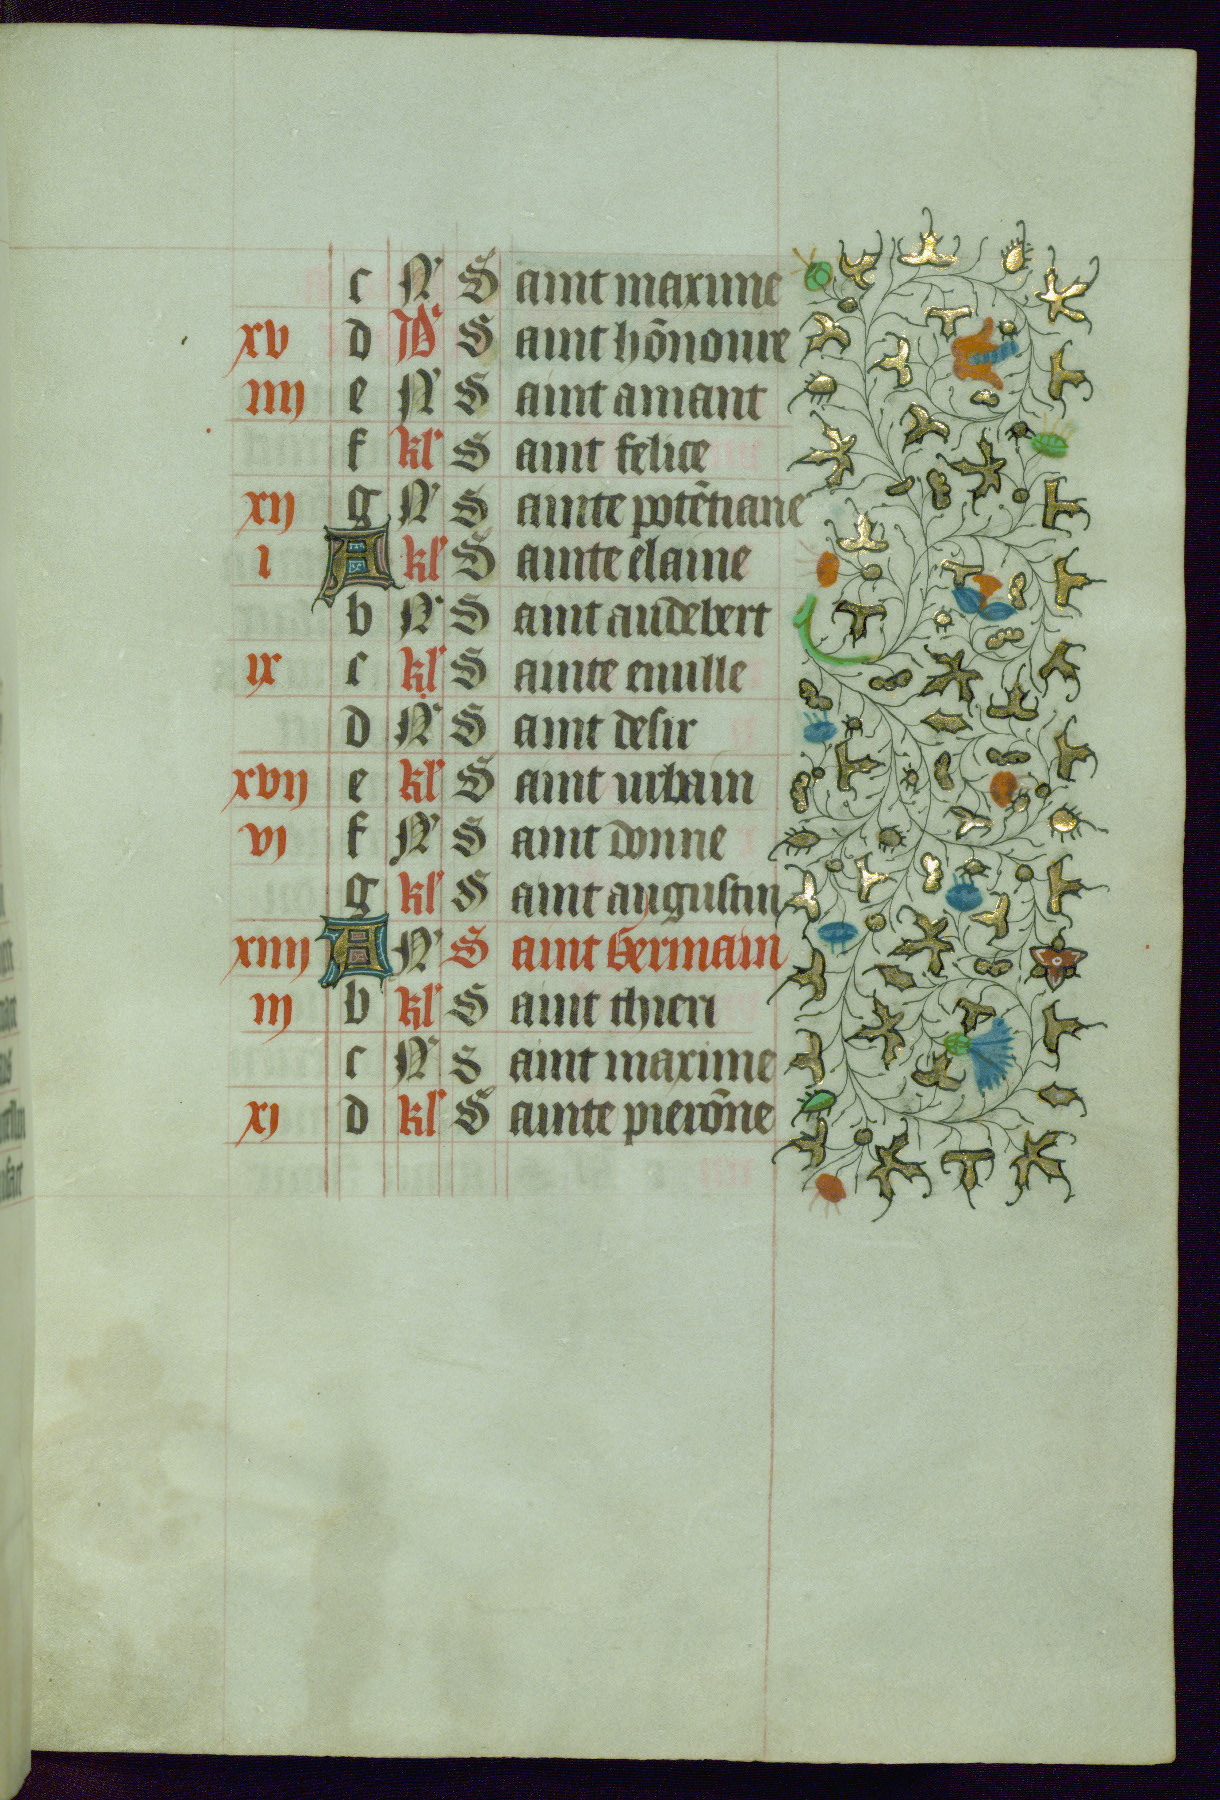 c N' Saint maxime
xv d Id' Saint hōnoure
iiij e N' Saint amant
f kl' Saint felice
xij g N' Sainte potētiane
i A kl' Sainte elaine
b N' Saint audebert
ix c kl' Sainte emille
d N' Saint desir
xvij e kl' Saint urbain
vj f N' Saint donne
g kl' Saint augustin
xiiij A N' Saint Germain
iij b kl' Saint thieri
c N' Saint maxime
xj d kl' Sainte pierōne